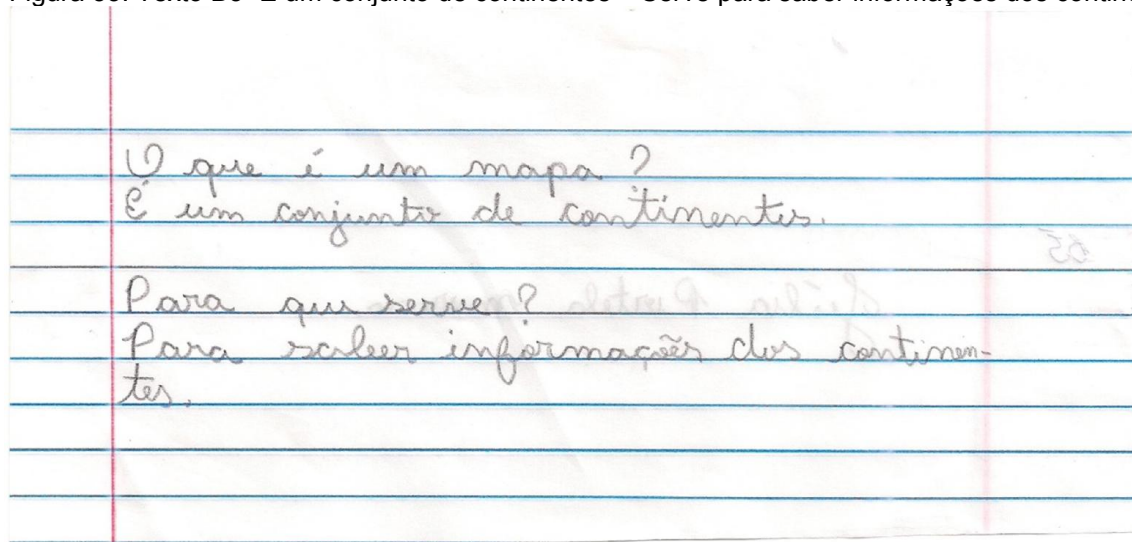 O que é um mapa?
É um conjunto de continentes.
Para que serve?
Para saber informações dos continen-
tes.